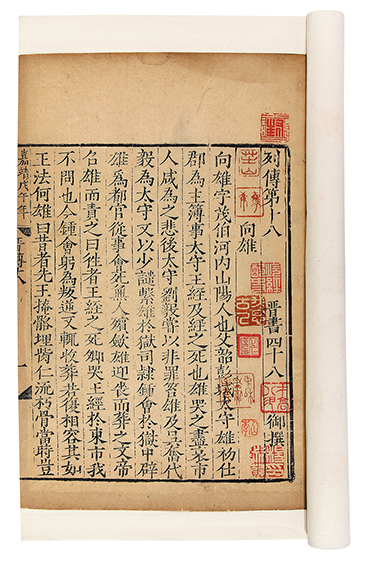 列傳第十八 晉書四十八 御撰
向雄
向雄字茂伯河內山陽人也父韶彭城太守雄初仕
郡為主簿事太守王經及經之死也雄哭之盡哀市
人咸為之悲後太守劉毅嘗以非罪笞雄及吳奮代
毅為太守又以少譴繫雄於獄司隷鍾會於獄中辟
雄為都官從事會死無人殯斂雄迎喪而葬之文帝
召雄而責之曰往者王經之死卿哭王經於東市我
不問也今鍾會躬為叛逆又輒收葬若復相容其如
王法何雄曰昔者先王掩骼埋胔仁流朽骨當時豈
嘉靖戊午年 晉傳十八 一